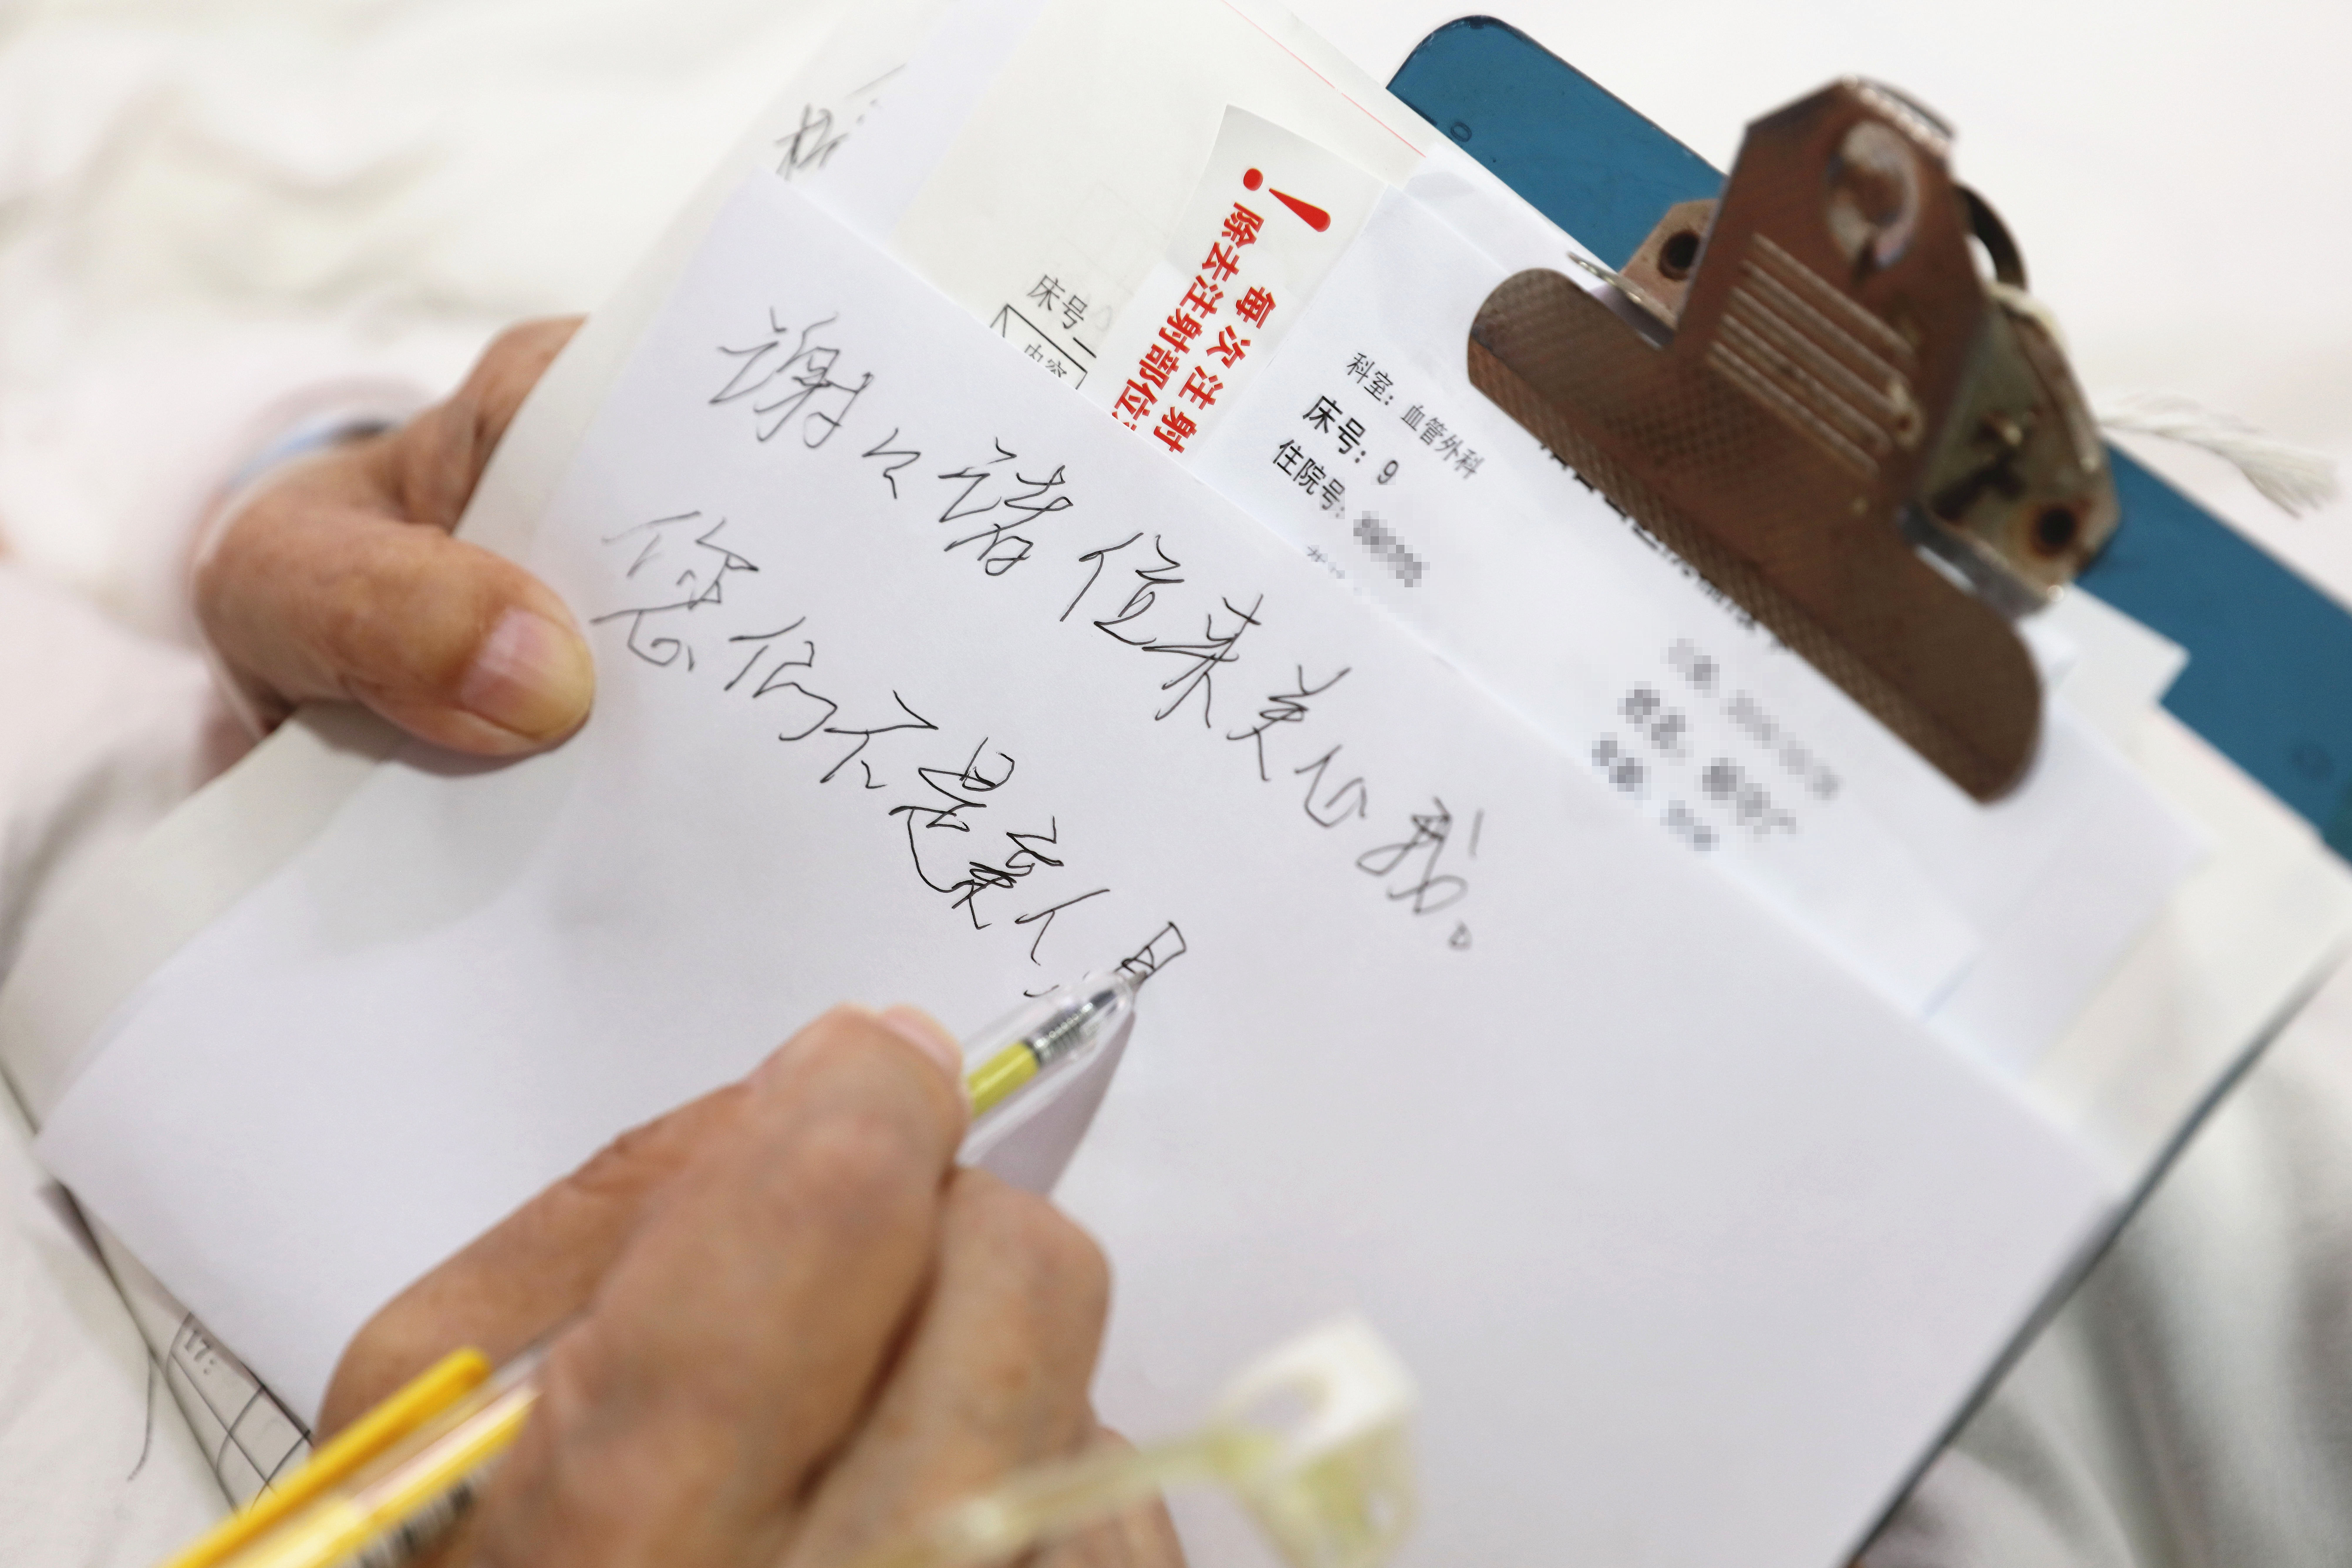 谢々诸位来关心我。
您们不是亲人
床号
内容
！
每次注射
除去注射部位
科室：血管外科
床号：9
住院号：
17: